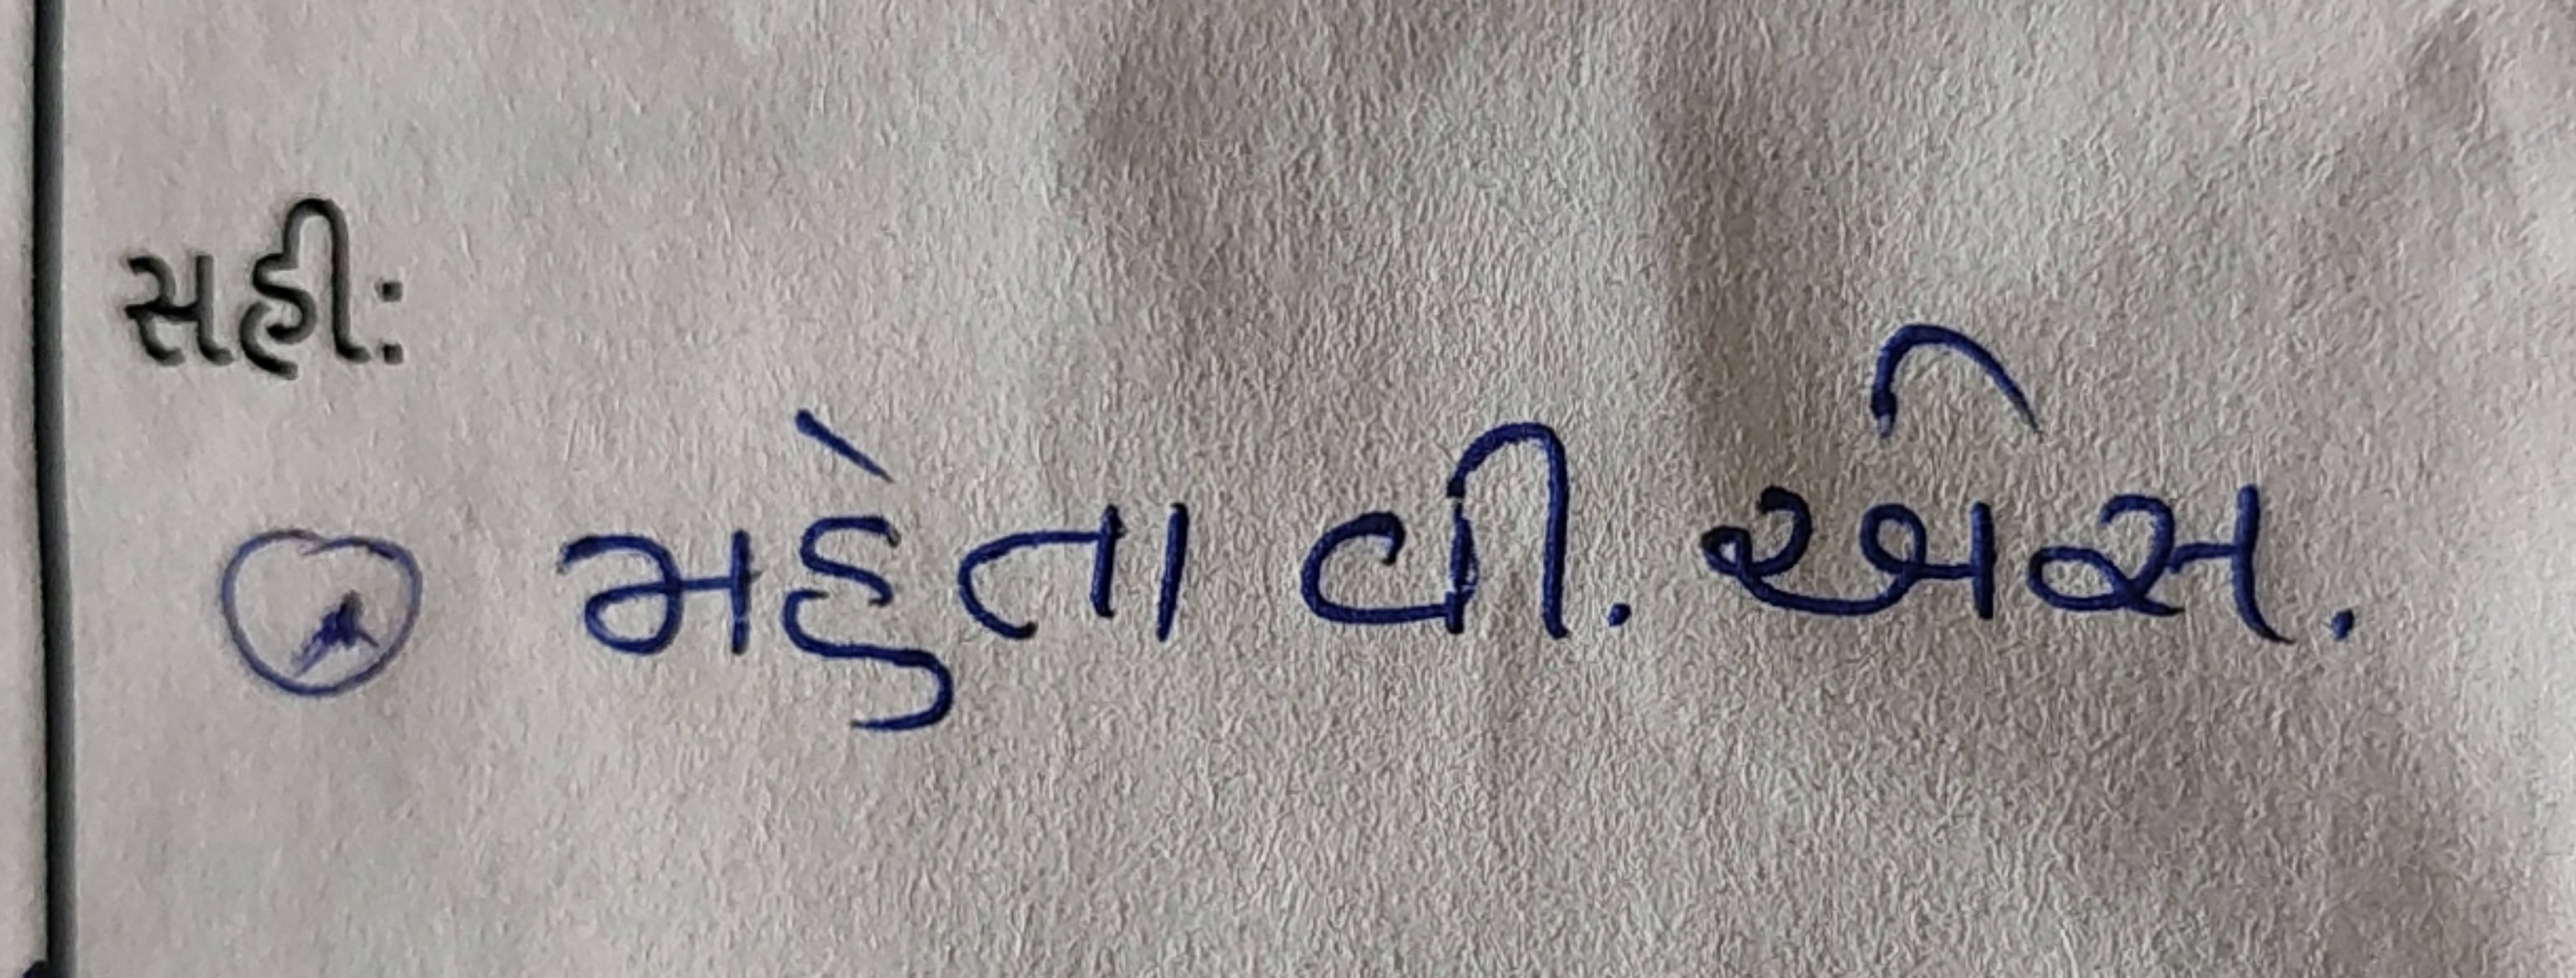 સહી:
મહેતા વી. એસ.